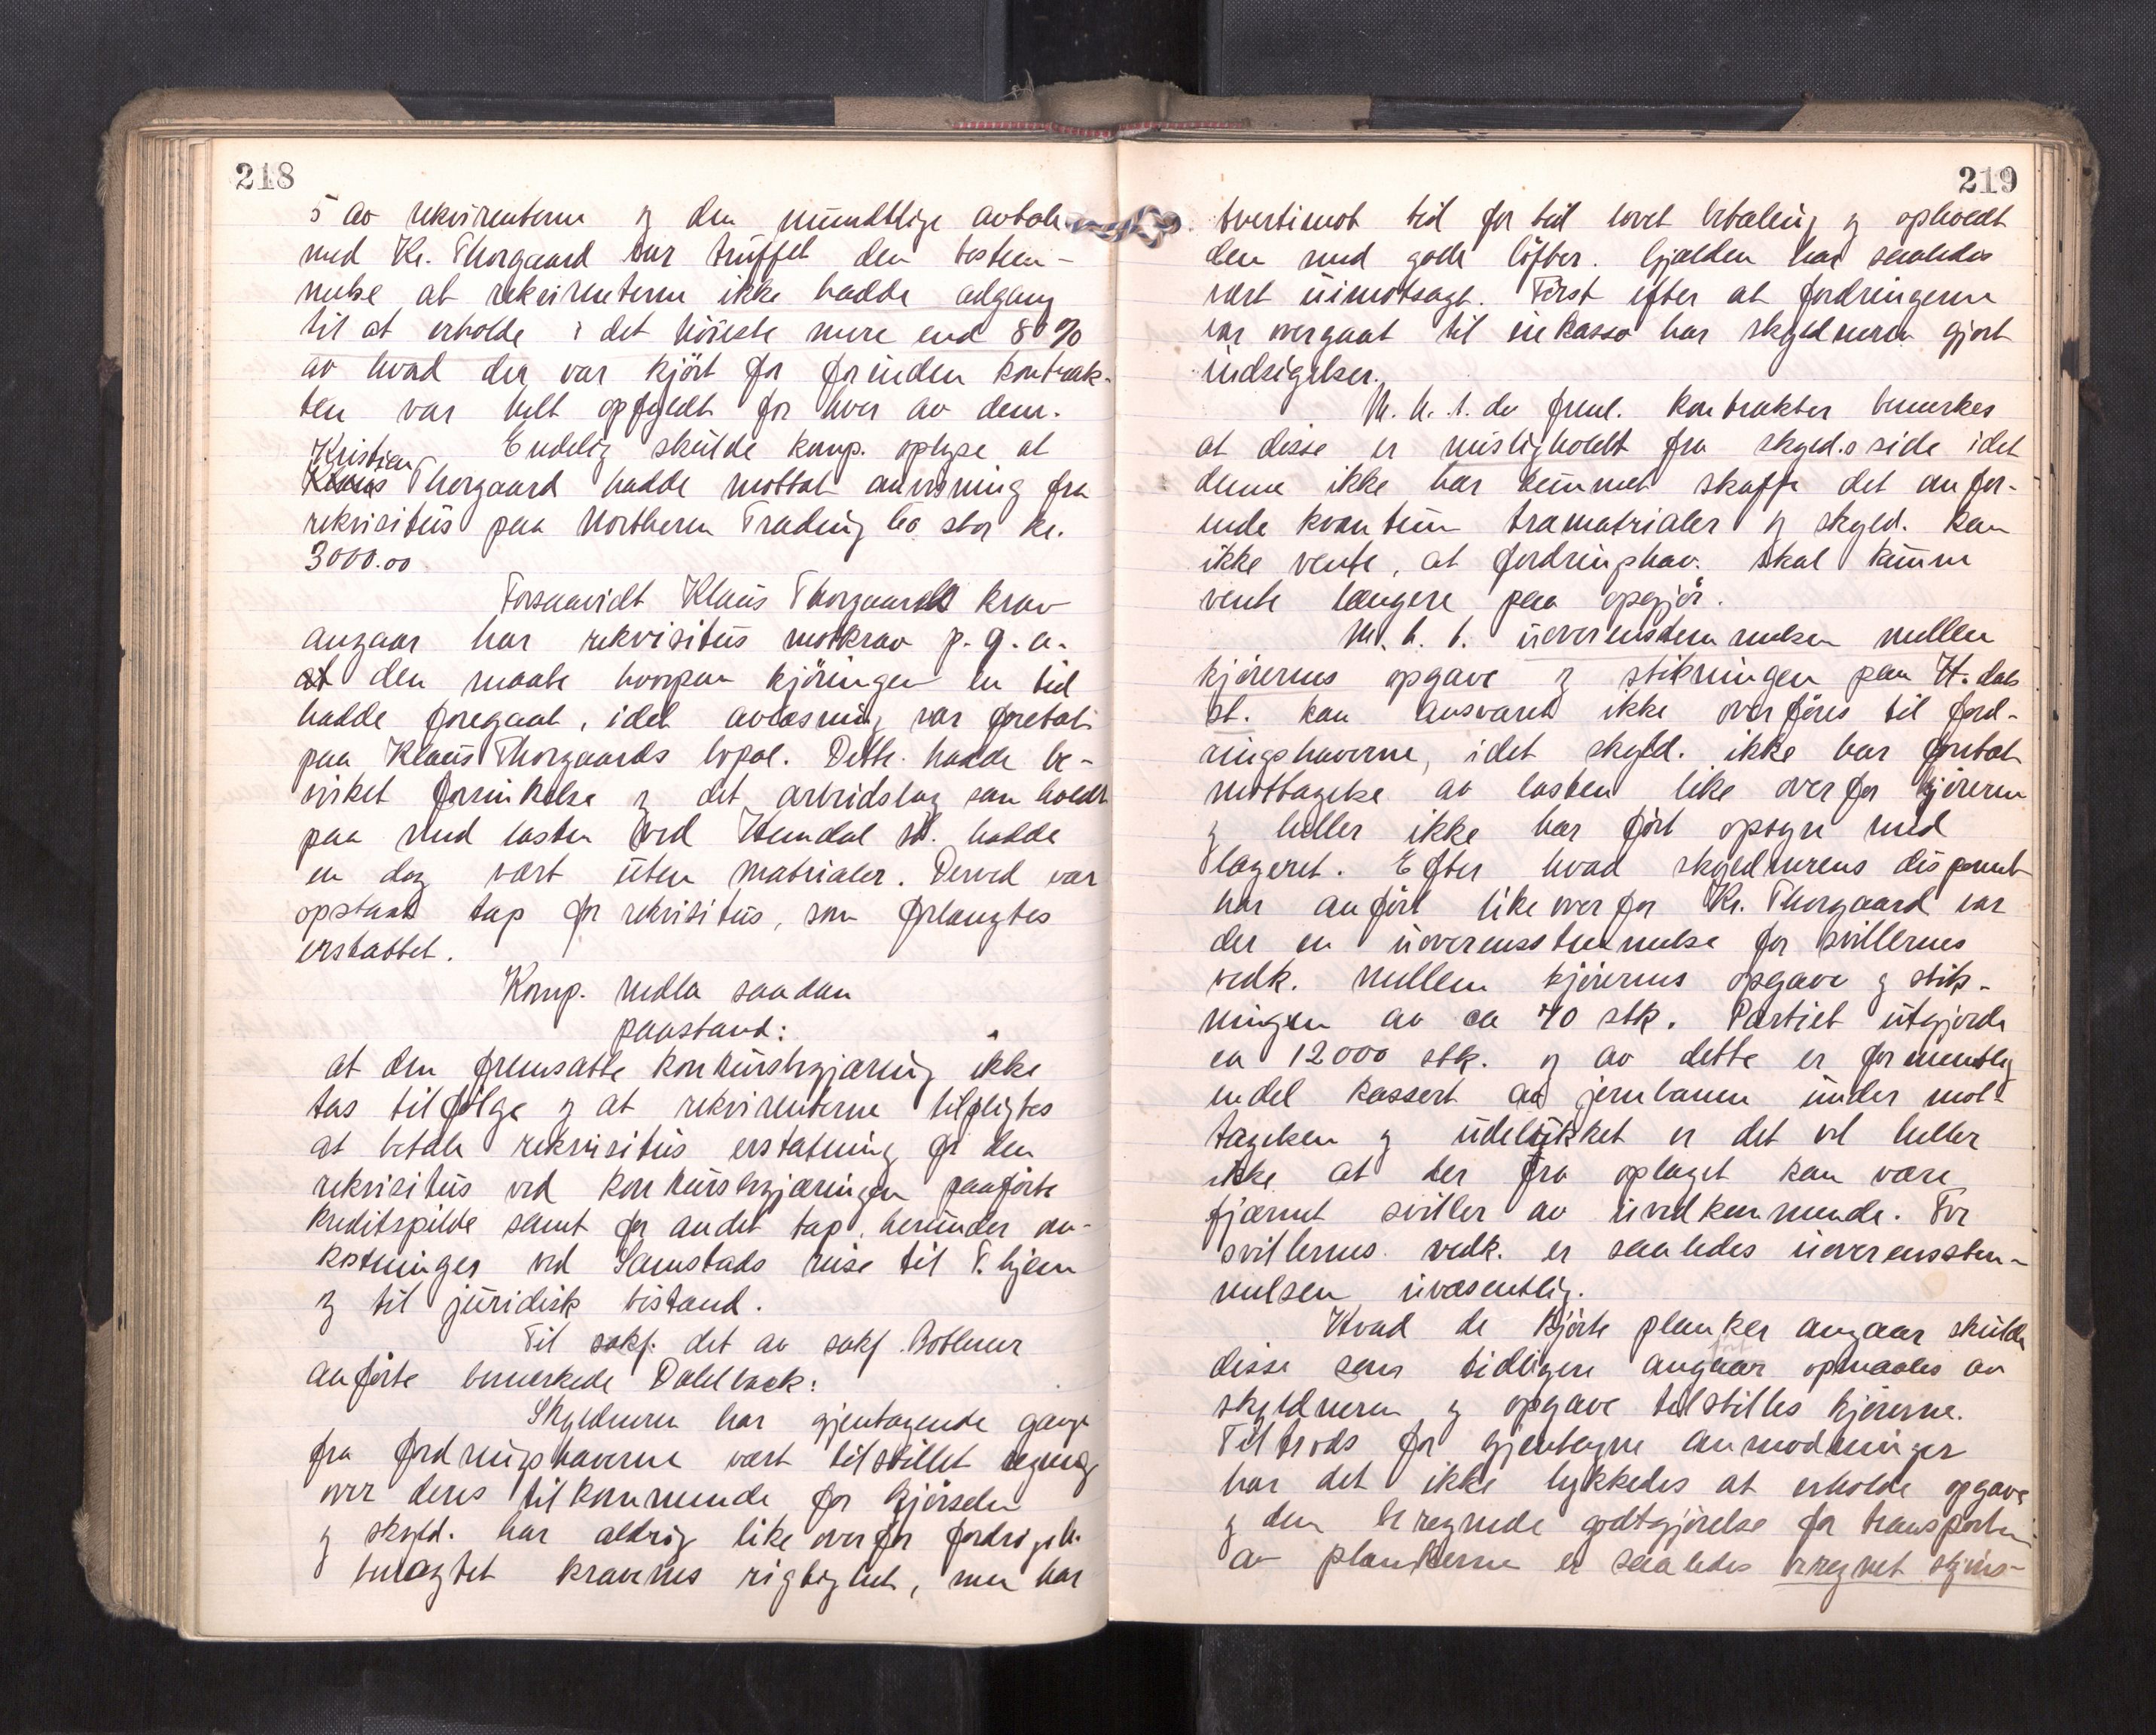 218
5 av rekvirenterne og den mundtlige avtale
med Kr. Thorgaard var truffet den bestem-
melse at rekvirenterne ikke hadde adgang
til at erholde i det höieste mere end 80%
av hvad der var kjört for forinden kontrak-
ten var helt opfyldt for hver av dem.
Endelig skulde komp. oplyse at
Kristian
Klaus Thorgaard hadde mottat anvisning fra
rekvisitus paa Northern Trading Co stor kr.
3000.00
Forsaavidt Klaus Thorgaards krav
angaar har rekvisitus motkrav p.g.a.
at den maate hvorpaa kjöringen en tid
hadde foregaat, idet avlæsning var foretat
paa Klaus Thorgaards bopæl. Dette hadde be-
virket forsinkelse og det arbeidslag som holdt
paa med lasten ved Heimdal st. hadde
en dag vært uten materialer. Derved var
opstaat tap for rekvisitus, som forlangtes
erstattet.
Komp. nedla saadan
paastand:
at den fremsatte konkursbegjæring ikke
tas tilfölge og at rekvirenterne tilpligtes
at betale rekvisitus erstatning for den
rekvisitus ved konkursbegjæringen paaförte
kreditspilde samt for andet tap, herunder om-
kostninger ved Samstads reise til T.hjem
og til juridisk bistand.
Til sakf. det av sakf. Bothner
anförte bemerkede Dahlback:
Skyldneren har gjentagende gange
fra fordringshaverne vært tilstillet regning
over deres tilkommende for kjörselen
og skyld. har aldrig like overfor fordrigsh.
benegtet kravenes rigtighet, men har
219
tvertimot tid for tid lovet betaling og opholdt
dem med gode löfter. Gjælden har saaledes
vært uimotsagt. Först efter at fordringerne
var overgaat til inkasso har skyldneren gjort
indsigelser.
M.h.t. de freml. kontrakter bemerkes
at disse er misligholdt fra skyld.s side idet
denne ikke har kunnet skaffe det anför-
ende kvantum træmaterialer og skyld. kan
ikke vente, at fordringshav. skal kunne
vente længere paa opgjör.
M.h.t. uoverensstemmelsen mellem
kjörernes opgave og stikningen paa H.dals
st. kan ansvaret ikke overföres til ford-
ringshaverne, idet skyld. ikke har foretat
mottagelse av lasten like overfor kjörerne
og heller ikke har fört opsyn med
lageret. Efter hvad skyldnerens disponent
har anfört like overfor Kr. Thorgaard var
der en uoverensstemmelse for svillernes
vedk. mellem kjörernes opgave og stik-
ningen av ca 70 stk. Partiet utgjorde
ca 12000 stk. og av dette er formentlig
endel kassert av jernbanen under mot-
tagelsen og udelukket er det vel heller
ikke at der fra oplaget kan være
fjærnet sviller av uvedkommende. For
svillernes vedk. er saaledes uoverensstem-
melsen uvæsentlig.
Hvad de kjörte planker angaar skulde
disse som tidligere angaar opmaales av
skyldneren og opgave tilstilles kjörerne.
Til trods for gjentagne anmodninger
har det ikke lykkedes at erholde opgave
og den beregnede godtgjörelse for transporten
av plankerne er saaledes beregnet skjöns-